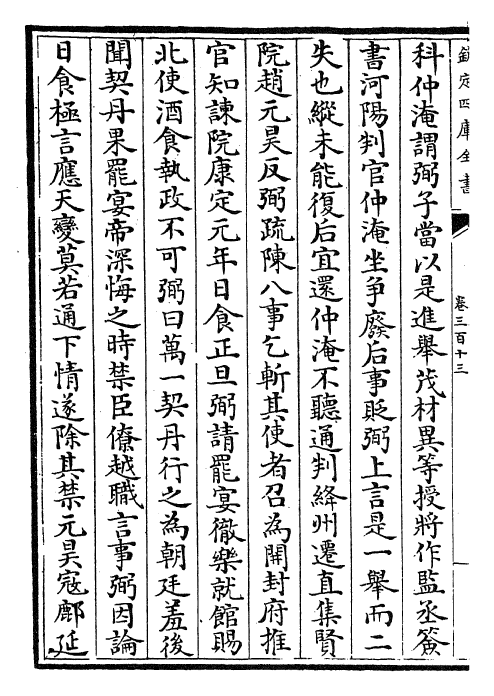 欽定四庫全書
卷三百十三
科仲淹謂弼子當以是進舉茂材異等授將作監丞簽
書河陽判官仲淹坐爭廢后事貶弼上言是一舉而二
失也縱未能復后宜還仲淹不聽通判絳州遷直集賢
院趙元昊反弼疏陳八事乞斬其使者召為開封府推
官知諫院康定元年日食正旦弼請罷宴徹樂就館賜
北使酒食執政不可弼曰萬一契丹行之為朝廷羞後
聞契丹果罷宴帝深悔之時禁臣僚越職言事弼因論
日食極言應天變莫若通下情遂除其禁元昊寇鄜延